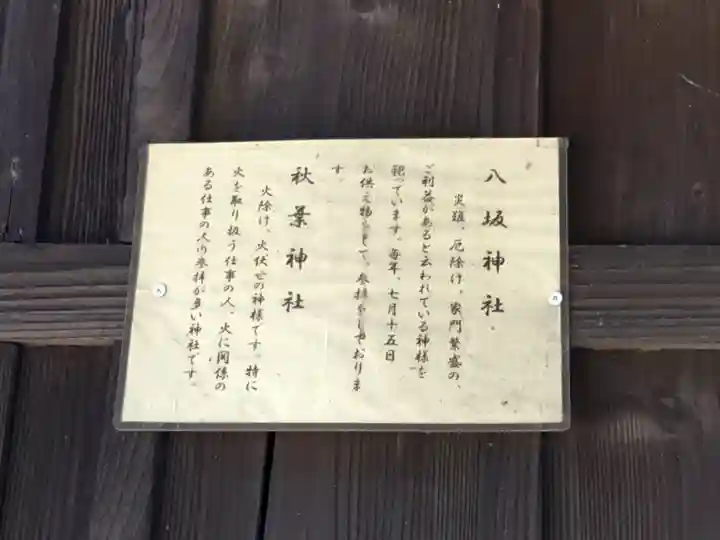 八坂神社
災難、厄除け、家門繁盛の、
ご利益があると云われている神様を
祀っています。毎年、七月十五日
お供え物をして、参拝をしておりま
す。
秋葉神社
火除け、火伏せの神様です。特に
火を取り扱う仕事の人、火に関係の
ある仕事の人の参拝が多い神社です。